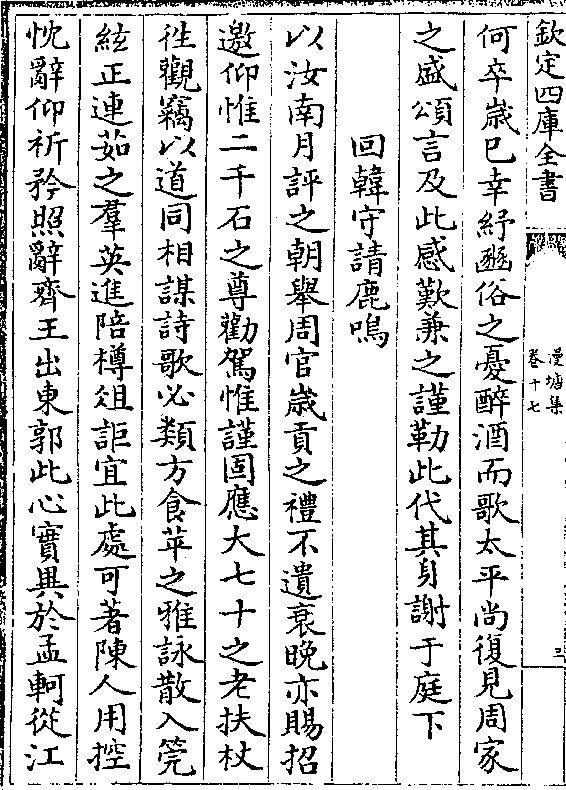 欽定四庫全書
漫塘集
卷十七
三
何卒歲已幸紓豳俗之憂醉酒而歌太平尚復見周家
之盛頌言及此感歎兼之謹勒此代其身謝于庭下
回韓守請鹿鳴
以汝南月評之朝舉周官歲貢之禮不遺衰晩亦賜招
邀仰惟二千石之尊勸駕惟謹固應大七十之老扶杖
徃觀竊以道同相謀詩歌必類方食苹之雅詠散入筦
絃正連茹之羣英進陪樽俎詎宜此處可著陳人用控
忱辭仰祈矜照辭齊王出東郭此心實異於孟軻從江